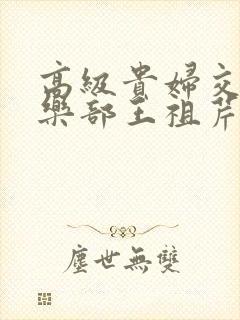 高級貴婦交
樂部王祖芹
塵世無雙